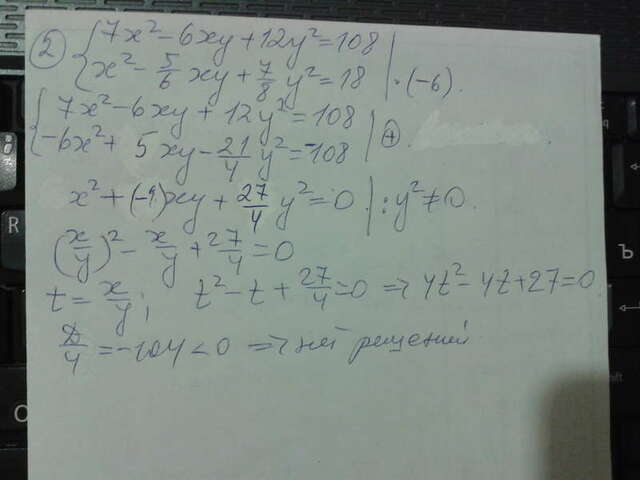 ② { 7x² - 6xy + 12y² = 108
x² - 5/6 xy + 7/8 y² = 18 | · (-6).
{ 7x² - 6xy + 12y² = 108
-6x² + 5xy - 21/4 y² = -108 | ⊕.
x² + (-1)xy + 27/4 y² = 0 | : y² ≠ 0.
(x/y)² - x/y + 27/4 = 0
t = x/y; t² - t + 27/4 = 0 => 4t² - 4t + 27 = 0
D/4 = -104 < 0 => нет решений
R
O
Ъ